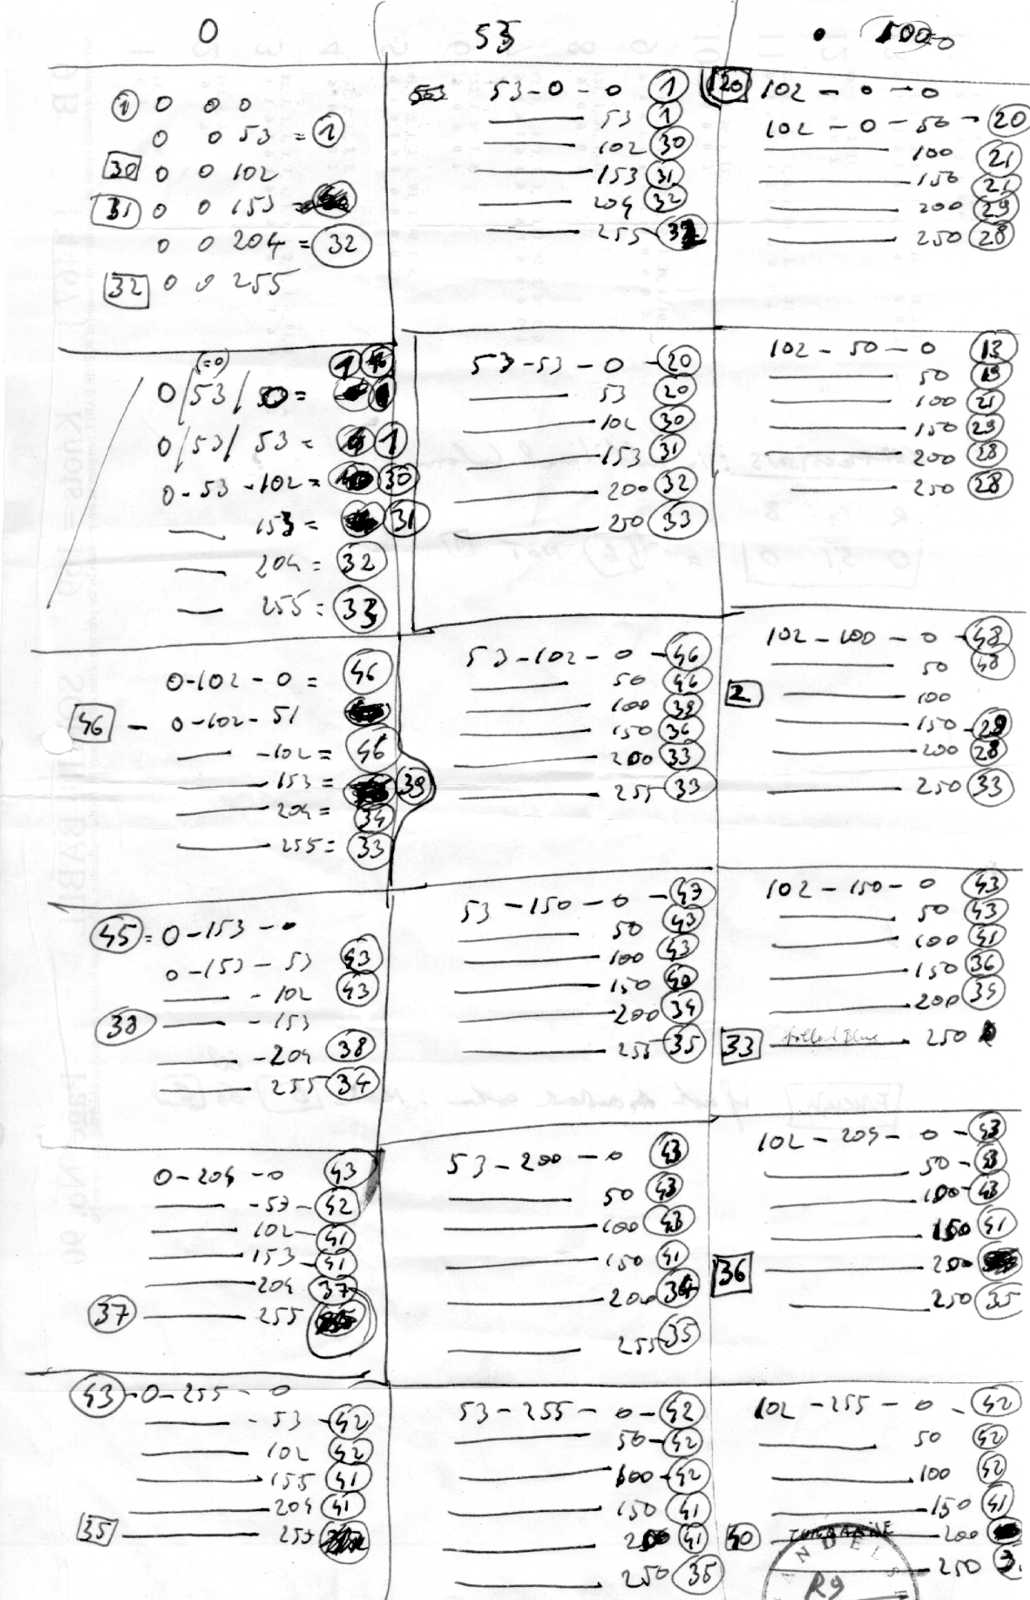 0
① 0 0 0
0 0 53 = ①
30 0 0 102
31 0 0 153 =
0 0 204 = 32
32 0 0 255
(=0) 1 46
0/53/ 0 = 1
0/53/ 53 = 1
0-53-102 = 30
— 153 = 31
— 204 = 32
— 255 = 33
0-102-0 = 46
46 - 0-102-51
— -102 = 46
— 153 = 39
— 204 = 34
— 255 = 33
45 = 0-153-0
0-153-53 43
— -102 43
38 — -153
— -204 38
— 255 34
0-204-0 43
— -53- 42
— 102- 41
— 153- 41
— 204 37
37 — 255
43 -0-255-0
— -53 -42
— 102 42
— 155 41
— 204 41
35 — 255
53
53-0-0 1
— 53 1
— 102 30
— 153 31
— 204 32
— 255 32
53-53-0 -20
— 53 20
— 102 30
— 153 31
— 200 32
— 250 33
53-102-0 -46
— 50 46
— 100 38
— 150 36
— 200 33
— 255 33
53-150-0 -43
— 50 43
— 100 43
— 150 40
— 200 34
— 255 35
53-200-0 43
— 50 43
— 100 43
— 150 41
— 200 34
— 255 35
53-255-0-42
— 50-42
— 100-42
— 150 41
— 41
— 250 35
120 102-0-0
102-0-50-20
— 100 21
— 150 21
— 200 29
— 250 28
102-50-0 13
— 50 19
— 100 21
— 150 29
— 200 28
— 250 28
102-100-0 -48
— 50 48
2 — 100
— 150-28
— 200 28
— 250 33
102-150-0 43
— 50 43
— 100 41
— 150 36
— 200 34
33 — 250
102-204-0-43
— 50-43
— 100-43
— 150 41
36 — 200
— 250 35
102-255-0-42
— 50 42
— 100 42
— 150 41
40 — 200
— 250
R9